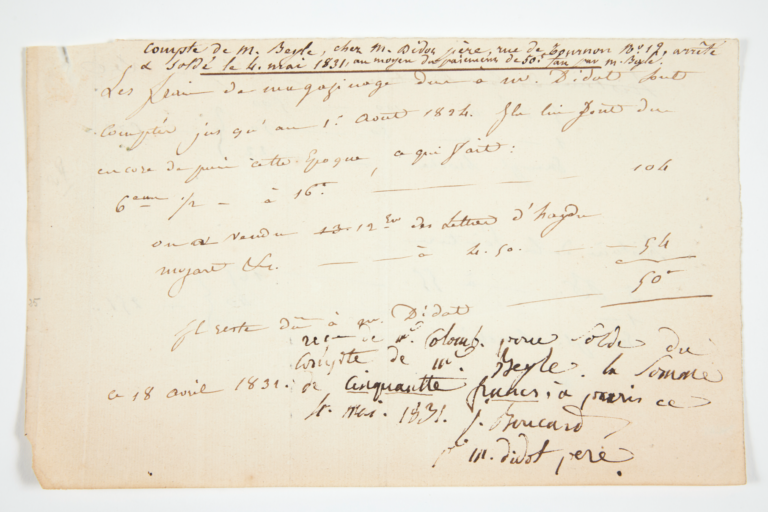 Compte de M. Beyle, chez M. Didot père, rue de Tournon No. 12, arrêté
& soldé le 4. mai 1831. au moyen du paiement de 50f. fait par M. Beyle.
Les frais de magazinage dus a Mr. Didot sont
comptés jusqu'au 1er. Aout 1824. Il lui sont du
encore depuis cette Epoque, ce qui fait:
6 ans 1/2 — à 16f. — 104
on a vendu 12 Ex des Lettres d'haydn
mozart &c. — à 4. 50. — 54
50"
Il reste dû à Mr. Didot
ce 18 avril 1831.
reçu de Mr. Colomb. pour solde du
Compte de Mr. Beyle. la somme
de cinquantte francs, à paris ce
4. Mai. 1831.
J. Boucard
pr M. didot pere.